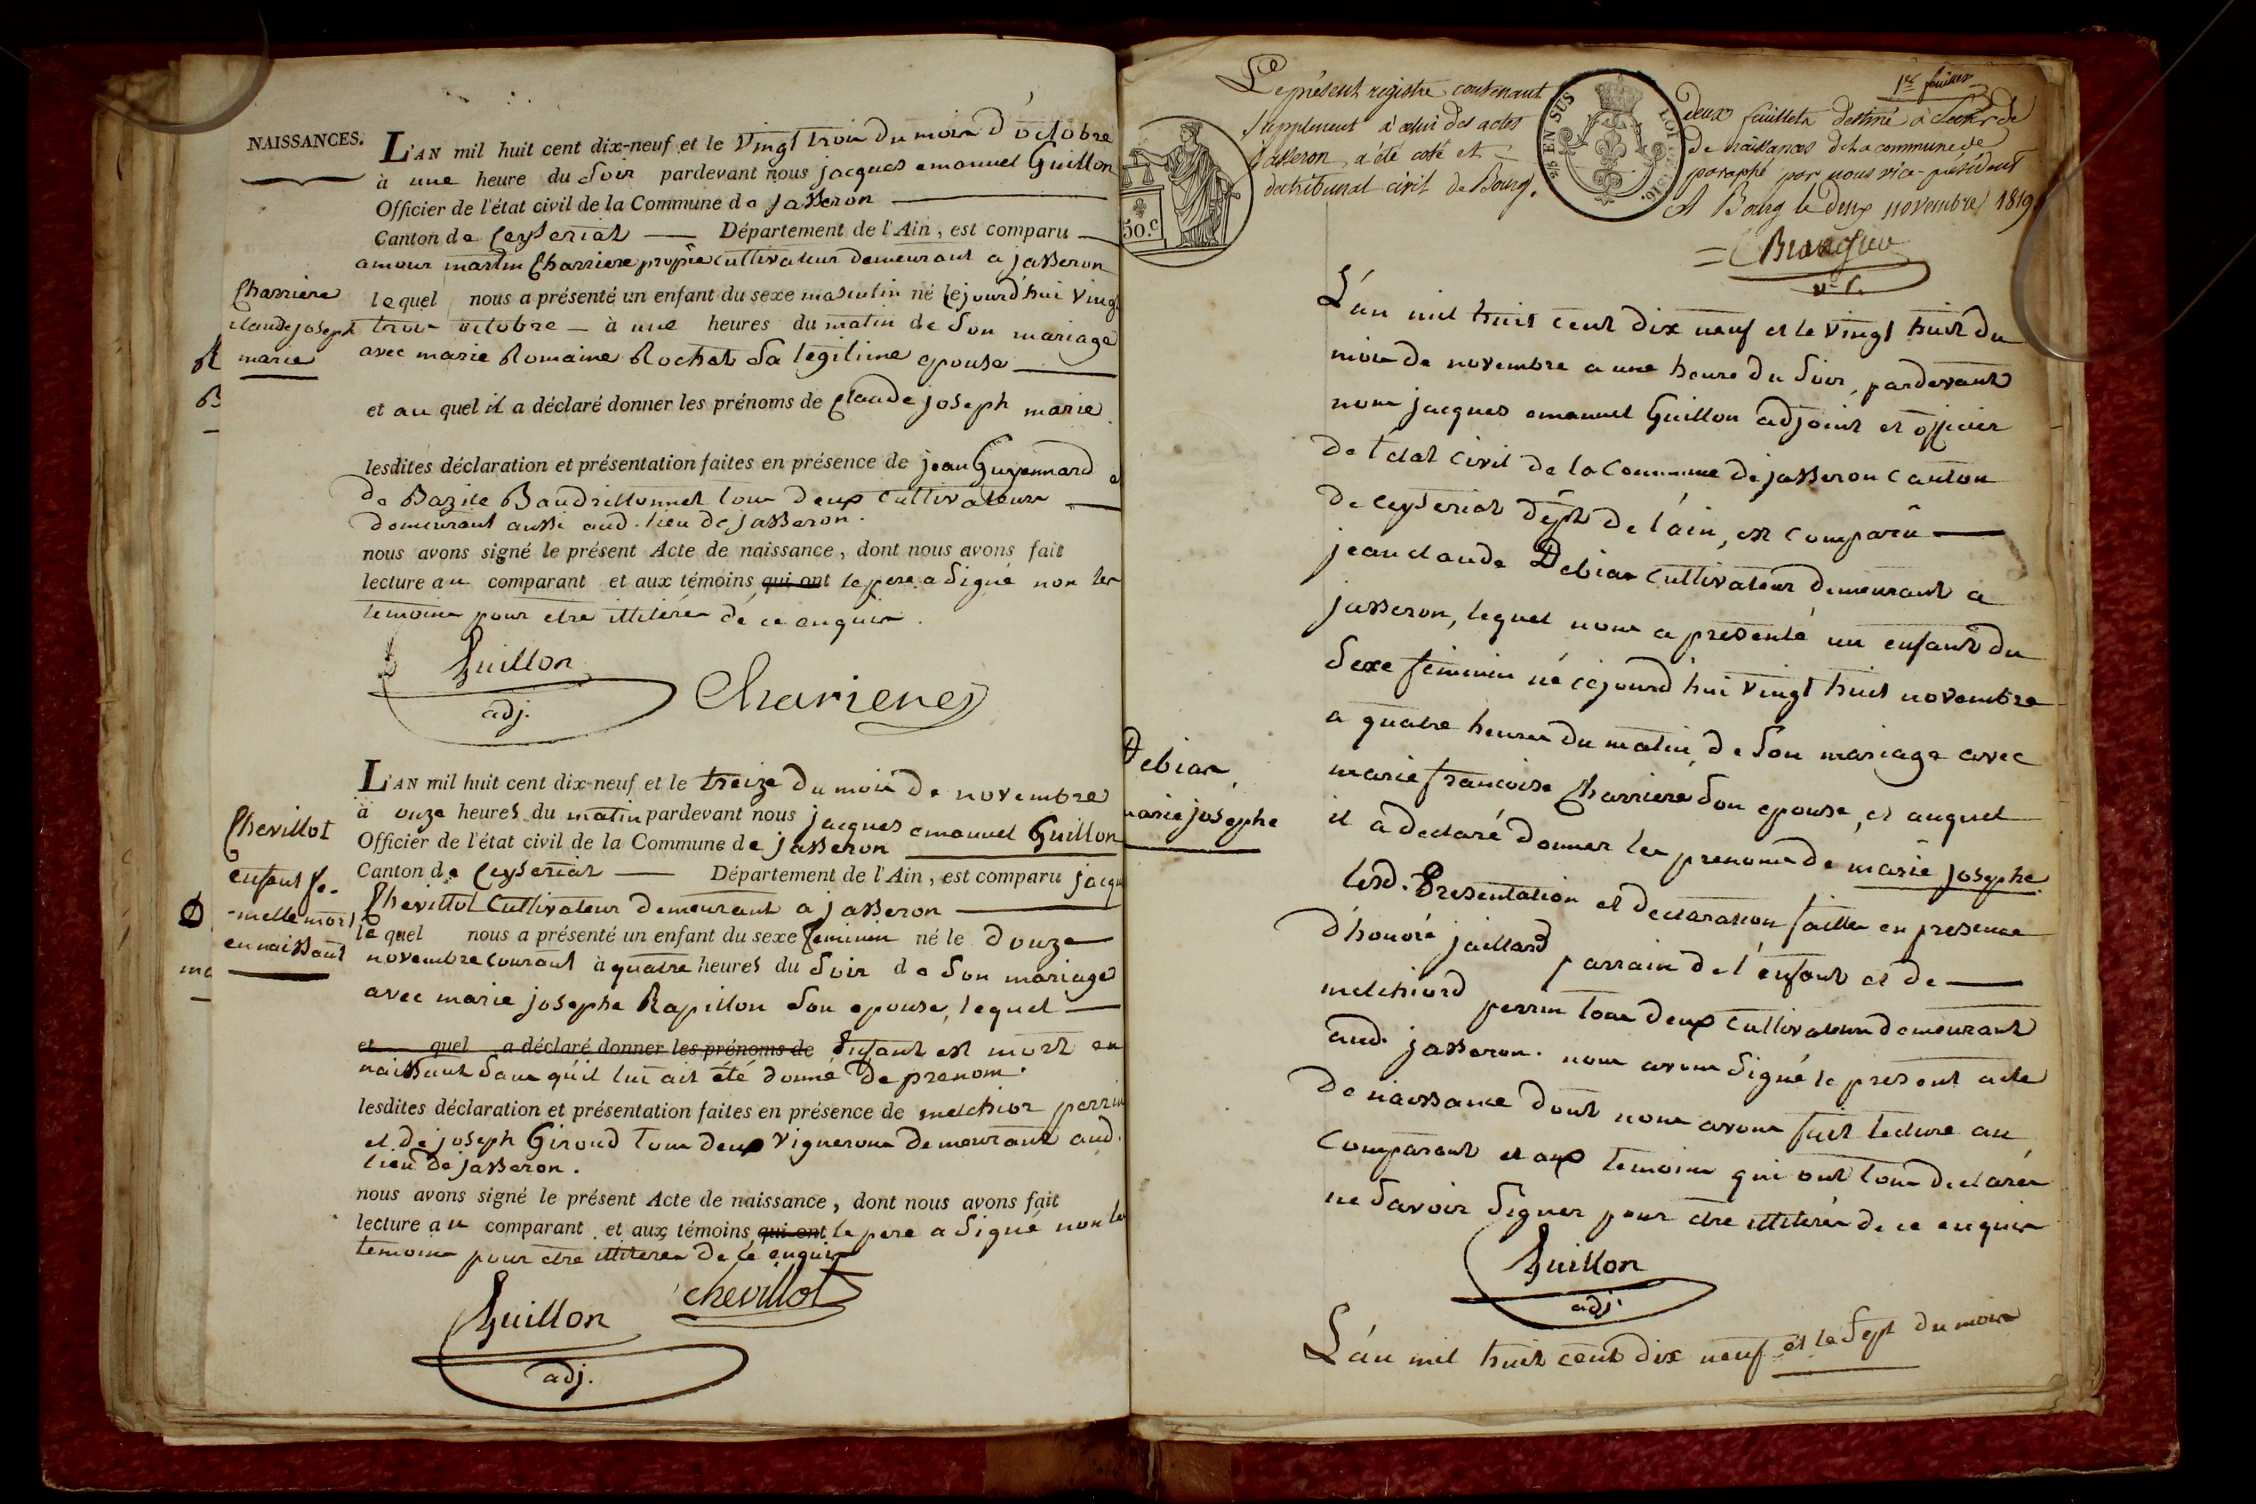 NAISSANCES.
L'AN mil huit cent dix-neuf et le vingt trois du mois d'octobre
à une heure du soir pardevant nous jacques emanuel Guillon
Officier de l'état civil de la Commune de jasseron
Canton de Ceyseriat Département de l'Ain, est comparu
amour martin Charriere proprre cultivateur demeurant a jasseron
lequel nous a présenté un enfant du sexe masculin né cejourd'hui vingt
trois octobre à une heures du matin de son mariage
avec marie Romaine Rochet sa legitime epouse
et au quel il a déclaré donner les prénoms de Claude joseph marie
lesdites déclaration et présentation faites en présence de jean Guyennard et
de Bazile Baudrillonnet tous deux cultivateurs
demeurant aussi aud. lieu de jasseron.
nous avons signé le présent Acte de naissance, dont nous avons fait
lecture au comparant et aux témoins qui ont le pere a signé non les
temoins pour etre illiterés de ce enquis.
Guillon
adj.
Charriere
Charriere
claude joseph
marie
R
B
L'AN mil huit cent dix-neuf et le treize du mois de novembre
à onze heures du matin pardevant nous jacques emanuel Guillon
Officier de l'état civil de la Commune de jasseron
Canton de Ceyseriat Département de l'Ain, est comparu jacqu
Chevillot cultivateur demeurant a jasseron
lequel nous a présenté un enfant du sexe feminin né le douze
novembre courant à quatre heures du soir de son mariage
avec marie josephe Rapillon son epouse, lequel
et quel a déclaré donner les prénoms de Enfant est mort en
naissant sans qu'il lui ait été donné de prenom.
lesdites déclaration et présentation faites en présence de melchior perrin
et de joseph Giroud tous deux vignerons demeurant aud.
lieu de jasseron.
nous avons signé le présent Acte de naissance, dont nous avons fait
lecture au comparant et aux témoins qui ont le pere a signé non les
temoins pour etre illiterés de ce enquis
Guillon
adj.
chevillot
Chevillot
enfant fe-
-melle mort
en naissant
ma
1er feuillet
Le présent registre contenant deux feuillets destiné à
supplement à celui des actes de naissances de la commune de
jasseron, a été coté et paraphé par nous vice-président
du tribunal civil de Bourg. A Bourg le deux novembre 1819
v-p.
50.c
EN SUS
LOI 1816.
L'an mil huit cent dix neuf et le vingt huit du
mois de novembre a une heure du soir, pardevant
nous jacques emanuel Guillon adjoint et officier
de l'etat civil de la Commune de jasseron canton
de ceyseriat dépt. de l'ain, est comparu
jean claude Debias cultivateur demeurant a
jasseron, lequel nous a presenté un enfant du
sexe feminin né cejourd'hui vingt huit novembre
a quatre heures du matin, de son mariage avec
marie francoise Charriere son epouse, et auquel
il a declaré donner les prenoms de marie josephe
lesd. Presentation et declaration faites en presence
d'honoré jaillard parrain de l'enfant et de
melchiord perrin tous deux cultivateurs demeurant
aud. jasseron. nous avons signé le present acte
de naissance dont nous avons fait lecture au
comparant et aux temoins qui ont tous declarés
ne savoir signer pour etre illiterés de ce enquis
Guillon
adj.
Debias
marie josephe
L'an mil huit cent dix neuf et le sept du mois